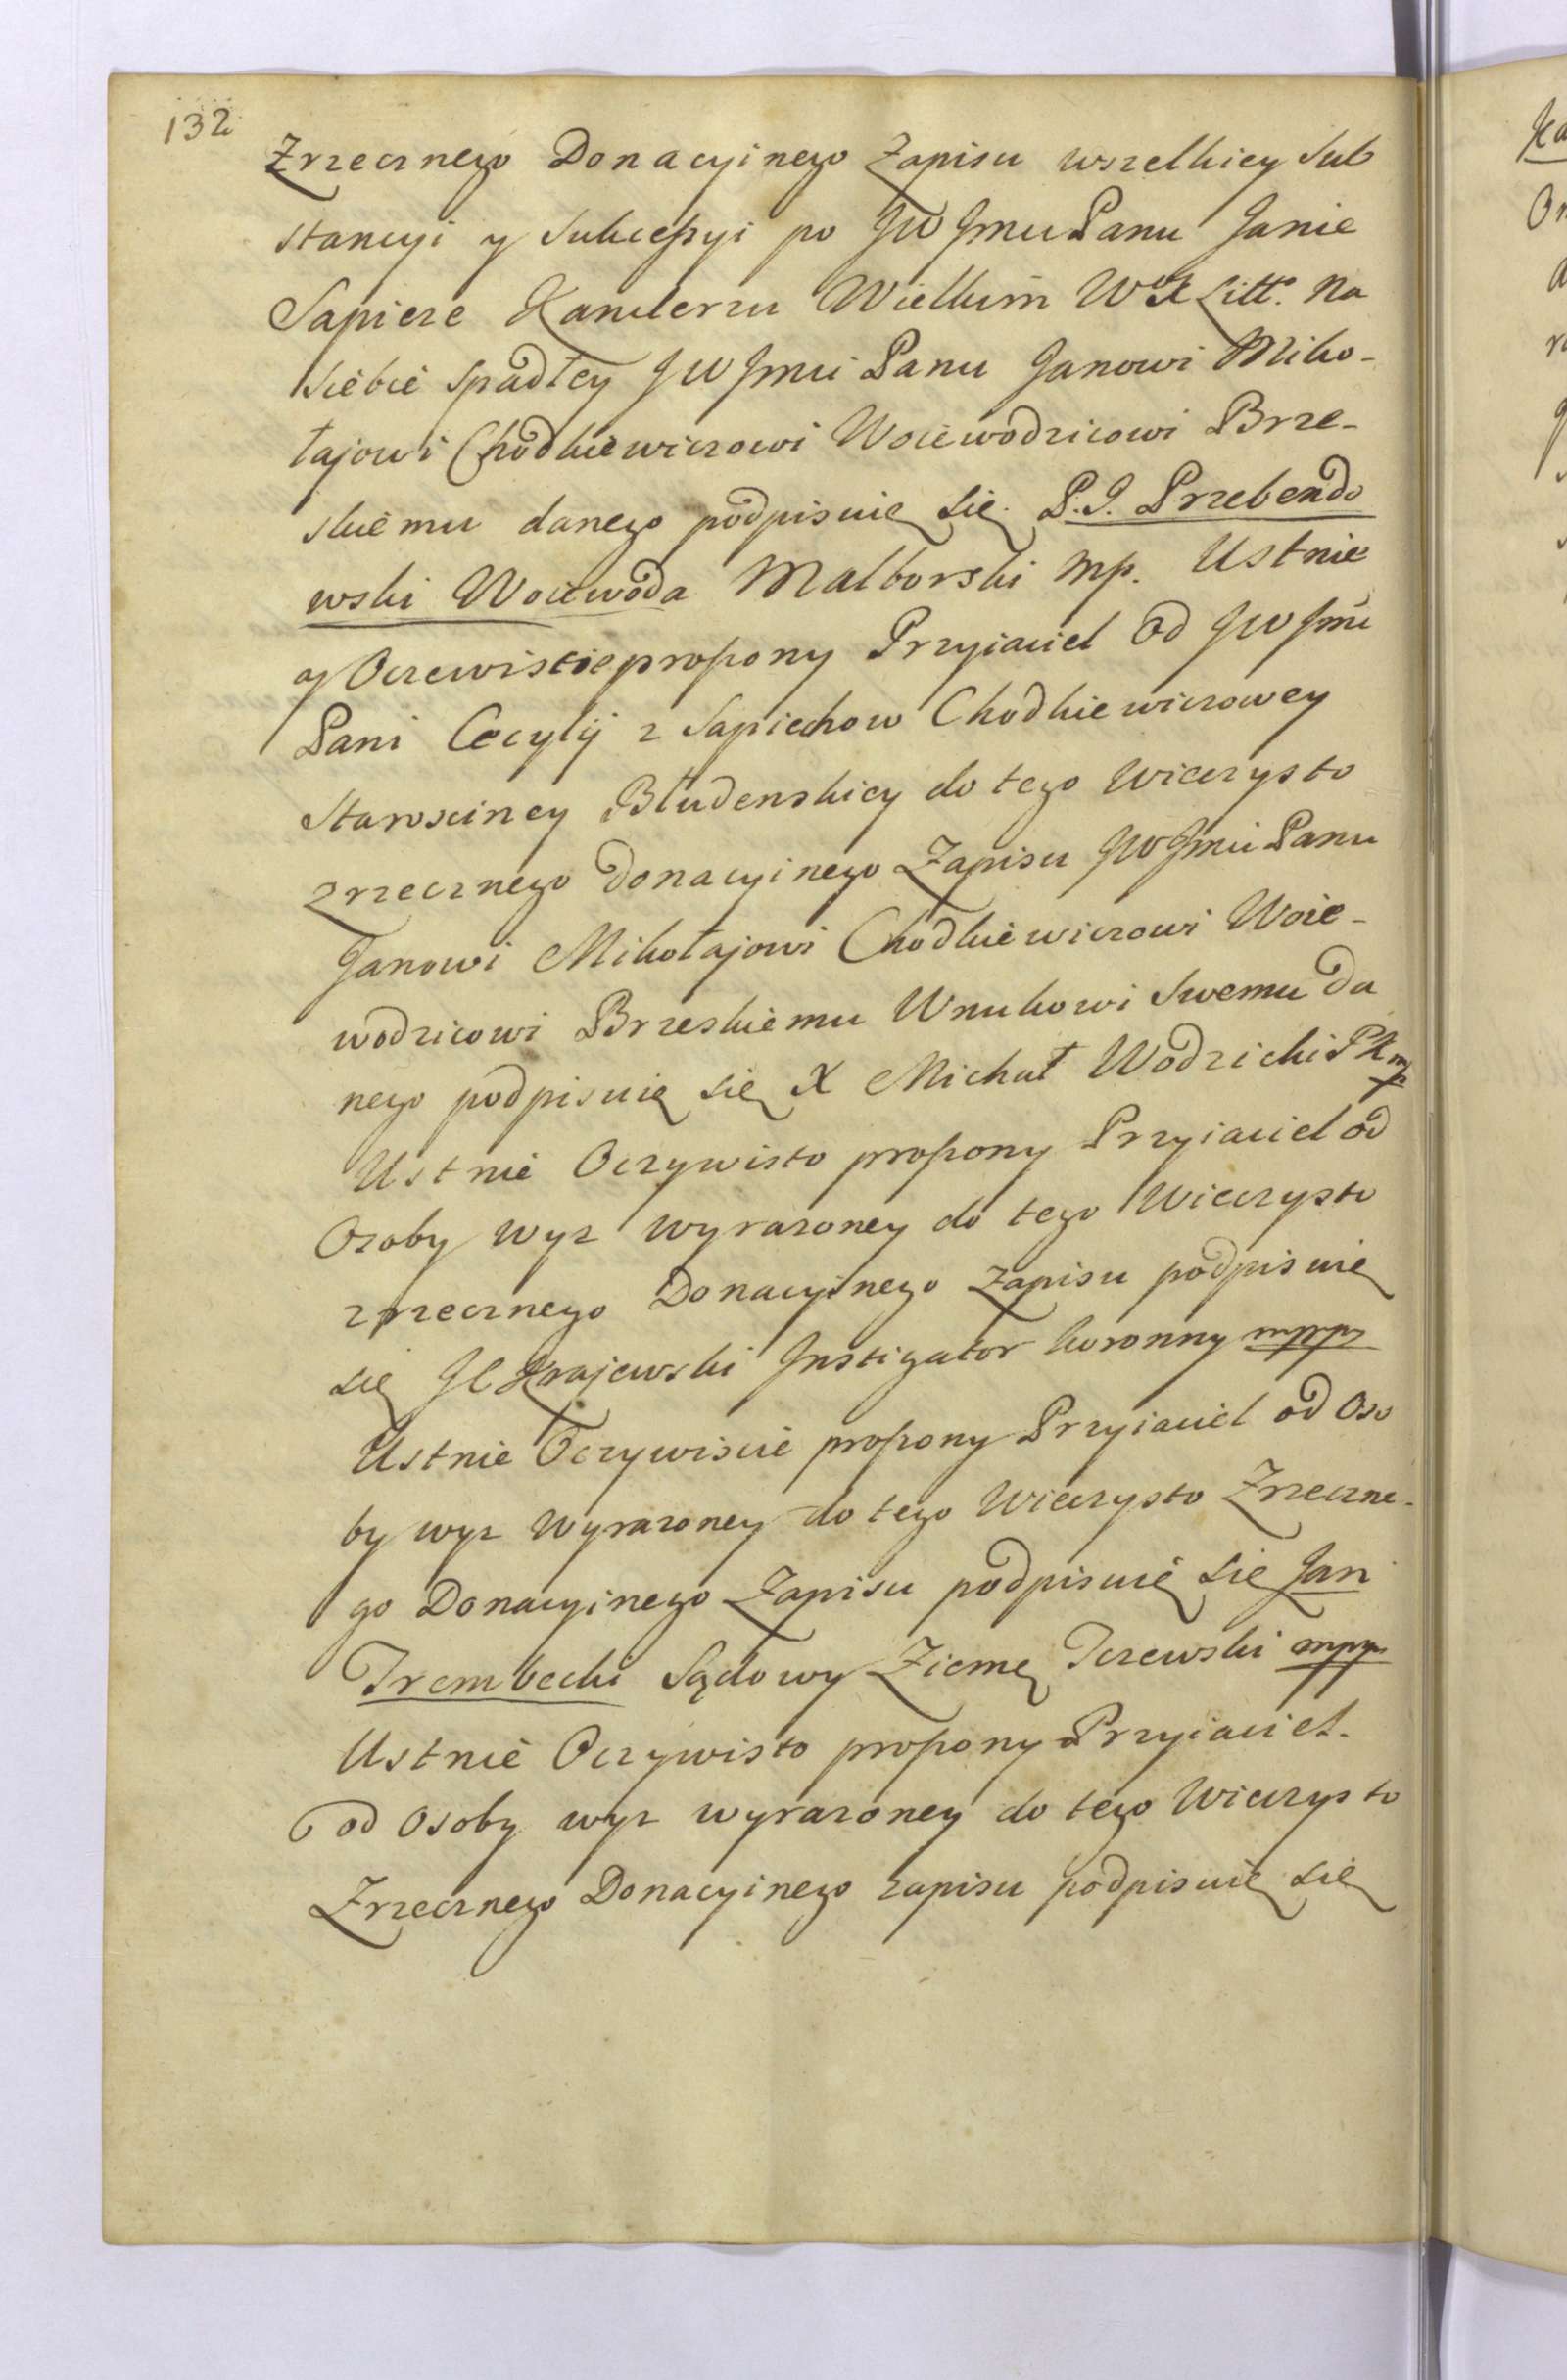 132
Zrzecznego Donacyinego Zapisu wszelkiey Sub
stancyi y Sukcessyi po JW Jmu Panu Janie
Sapieze Kanclerzu Wielkim WoX Litto. Na
siebie spadłey JW Jmci Panu Janowi Miko-
łajowi Chodkiewiczowi Woiewodzicowi Brze-
skiemu danego podpisuię się. P.J. Przebendo
wski Woiewoda Malborski mp. Ustnie
y Oczewistie proszony Przyiaciel Od JW Jmci
Pani Cecylij z Sapiechow Chodkiewiczowey
Starosciney Błudenskiey do tego Wieczysto
zrzecznego Donacyinego Zapisu JW Jmci Panu
Janowi Mikołajowi Chodkiewiczowi Woie-
wodzicowi Brzeskiemu Wnukowi Swemu Da
nego podpisuię się X Michał Wodzicki PK mp
Ustnie Oczywisto proszony Przyiaciel od
Ozoby wyz wyrazoney do tego Wieczysto
zrzecznego Donacyinego zapisu podpisuię
się Krajewski Jnstigator koronny mppr
Ustnie Oczywiscie proszony Przyiaciel od Oso
by wyz wyrazoney do tego Wieczysto Zrzeczne-
go Donacyinego Zapisu podpisuię się Jan
Trembecki Sądowy Ziemę Tczewski mpp
Ustnie Oczywisto proszony Przyiaciel.
od Osoby wyz wyrazoney do tego Wieczysto
Zrzecznego Donacyinego zapisu podpisuię się